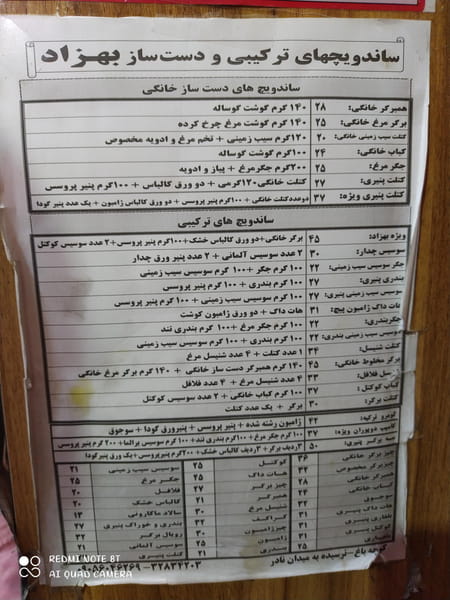 ساندویچهای ترکیبی و دست ساز بهزاد
ساندویچ های دست ساز خانگی
همبرگر خانگی: ۲۸ ۱۴۰ گرم گوشت گوساله
برگر مرغ خانگی: ۲۵ ۱۴۰ گرم گوشت مرغ چرخ کرده
کتلت سیب زمینی خانگی: ۲۰ ۱۲۰گرم سیب زمینی + تخم مرغ و ادویه مخصوص
کباب خانگی: ۲۴ ۱۰۰گرم گوشت گوساله
جگر مرغ: ۲۵ ۲۰۰گرم جگرمرغ + پیاز و ادویه
کتلت پنیری: ۲۷ کتلت خانگی ۱۲۰گرمی + دو ورق کالباس + ۱۰۰گرم پنیر پروسس
کتلت پنیری ویژه: ۳۷ دوعددکتلت خانگی + ۱۰۰گرم پنیر پروسس + دو ورق کالباس ژامبون + یک عدد پنیر گودا
ساندویچ های ترکیبی
ویژه بهزاد: ۴۵ برگر خانگی+دو ورق کالباس خشک+۱۰۰گرم پنیر پروسس+۲ عدد سوسیس کوکتل
سوسیس چدار: ۳۰ ۲ عدد سوسیس آلمانی + ۲ عدد پنیر ورق چدار
جگر سوسیس سیب زمینی: ۲۲ ۱۰۰ گرم جگر + ۱۰۰ گرم سوسیس سیب زمینی
بندری پنیری: ۲۷ ۱۰۰ گرم بندری + ۱۰۰ گرم پنیر پروسس
سوسیس سیب زمینی پنیری: ۲۷ ۱۰۰ گرم سوسیس سیب زمینی + ۱۰۰ گرم پنیر پروسس
هات داگ ژامبون پیچ: ۳۱ هات داگ + دو ورق ژامبون گوشت
جگربندری: ۲۲ ۱۰۰ گرم جگر مرغ + ۱۰۰ گرم بندری تند
سوسیس سیب زمینی بندری: ۲۲ ۱۰۰ گرم بندری + ۱۰۰ گرم سوسیس سیب زمینی
کتلت شنیسل: ۳۴ ۱ عدد کتلت + ۴ عدد شنیسل مرغ
برگر مخلوط خانگی: ۴۵ ۱۴۰ گرم همبرگر دست ساز خانگی + ۱۴۰ گرم برگر مرغ خانگی
فلافل: ۳۳ ۴ عدد شنیسل مرغ + ۴ عدد فلافل
کباب کوکتل: ۳۷ ۱۰۰ گرم کباب خانگی + ۲ عدد سوسیس کوکتل
کتلت برگر: ۳۰ برگر + یک عدد کتلت
ترکیه: ۴۲ ژامبون رشته شده + پنیر پروسس + پنیرورق گودا + سوجوق
ویژه: ۳۷ ۱۰۰ گرم جگر مرغ + ۱۰۰گرم بندری تند + ۱۰۰ گرم سوسیس + ۲۰۰ گرم پنیر پروسس
سه برگر پنیری: ۵۰ ۳ردیف برگر + ۳ردیف کالباس خشک + ۲۰۰گرم پنیرپروسس + یک ورق پنیرگودا
چیز برگر ۳۶ کوکتل ۲۵ سوسیس سیب زمینی ۲۱
چیزبرگر مخصوص ۳۲ هات داگ ۲۵ جگر مرغ ۲۵
همبرگر خانگی ۲۸ چیز برگر ۲۷ فلافل ۲۰
کباب خانگی ۲۴ همبرگر ۲۱ کالباس خشک ۲۰
سوجوق ۳۲ شنیسل مرغ ۳۰ سالاد ماکارونی ۱۳
هات داگ پنیری ۳۱ کراکف ۳۲ بندری و خوراک پنیری ۲۷
پنیری ۳۱ چیزژامبون ۳۰ رویال برگر ۳۲
کوکتل پنیری ۳۱ ژامبون ۲۵ سوسیس آلمانی ۲۱
۲۵ بندری ۲۱ کتلت پنیری
کوچه باغ - نرسیده به میدان نادر
۰۹۰۵۶۰۴۶۲۶۹-۳۲۸۳۴۲۰۳
REDMI NOTE 8T
AI QUAD CAMERA